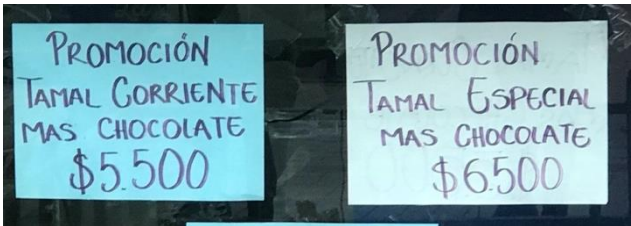 PROMOCIÓN
TAMAL CORRIENTE
MAS CHOCOLATE
$5.500
PROMOCIÓN
TAMAL ESPECIAL
MAS CHOCOLATE
$6.500